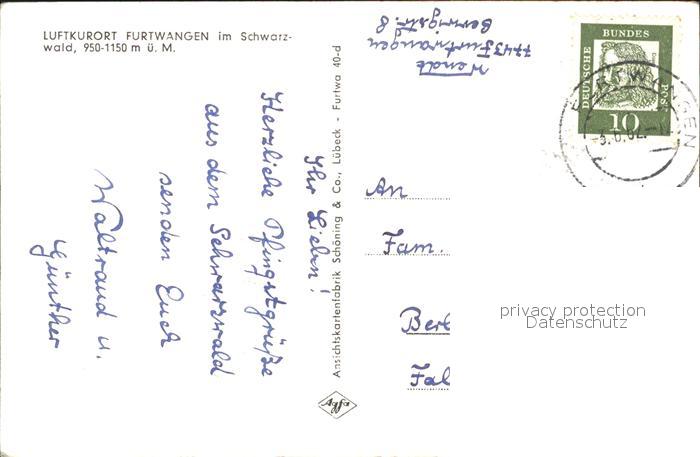 LUFTKURORT FURTWANGEN im Schwarz-
wald, 950-1150 m ü. M.
Ihr Lieben!
Herzliche Pfingstgrüße
aus dem Schwarzwald
senden Euch
Waltraud u.
Günther
Ansichtskartenfabrik Schöning & Co., Lübeck - Furtwa 40-d
Agfa
Wendt
7743 Furtwangen
DEUTSCHE BUNDES POST
10
FURTWANGEN
An
Fam.
Berl
Fal
privacy protection
Datenschutz